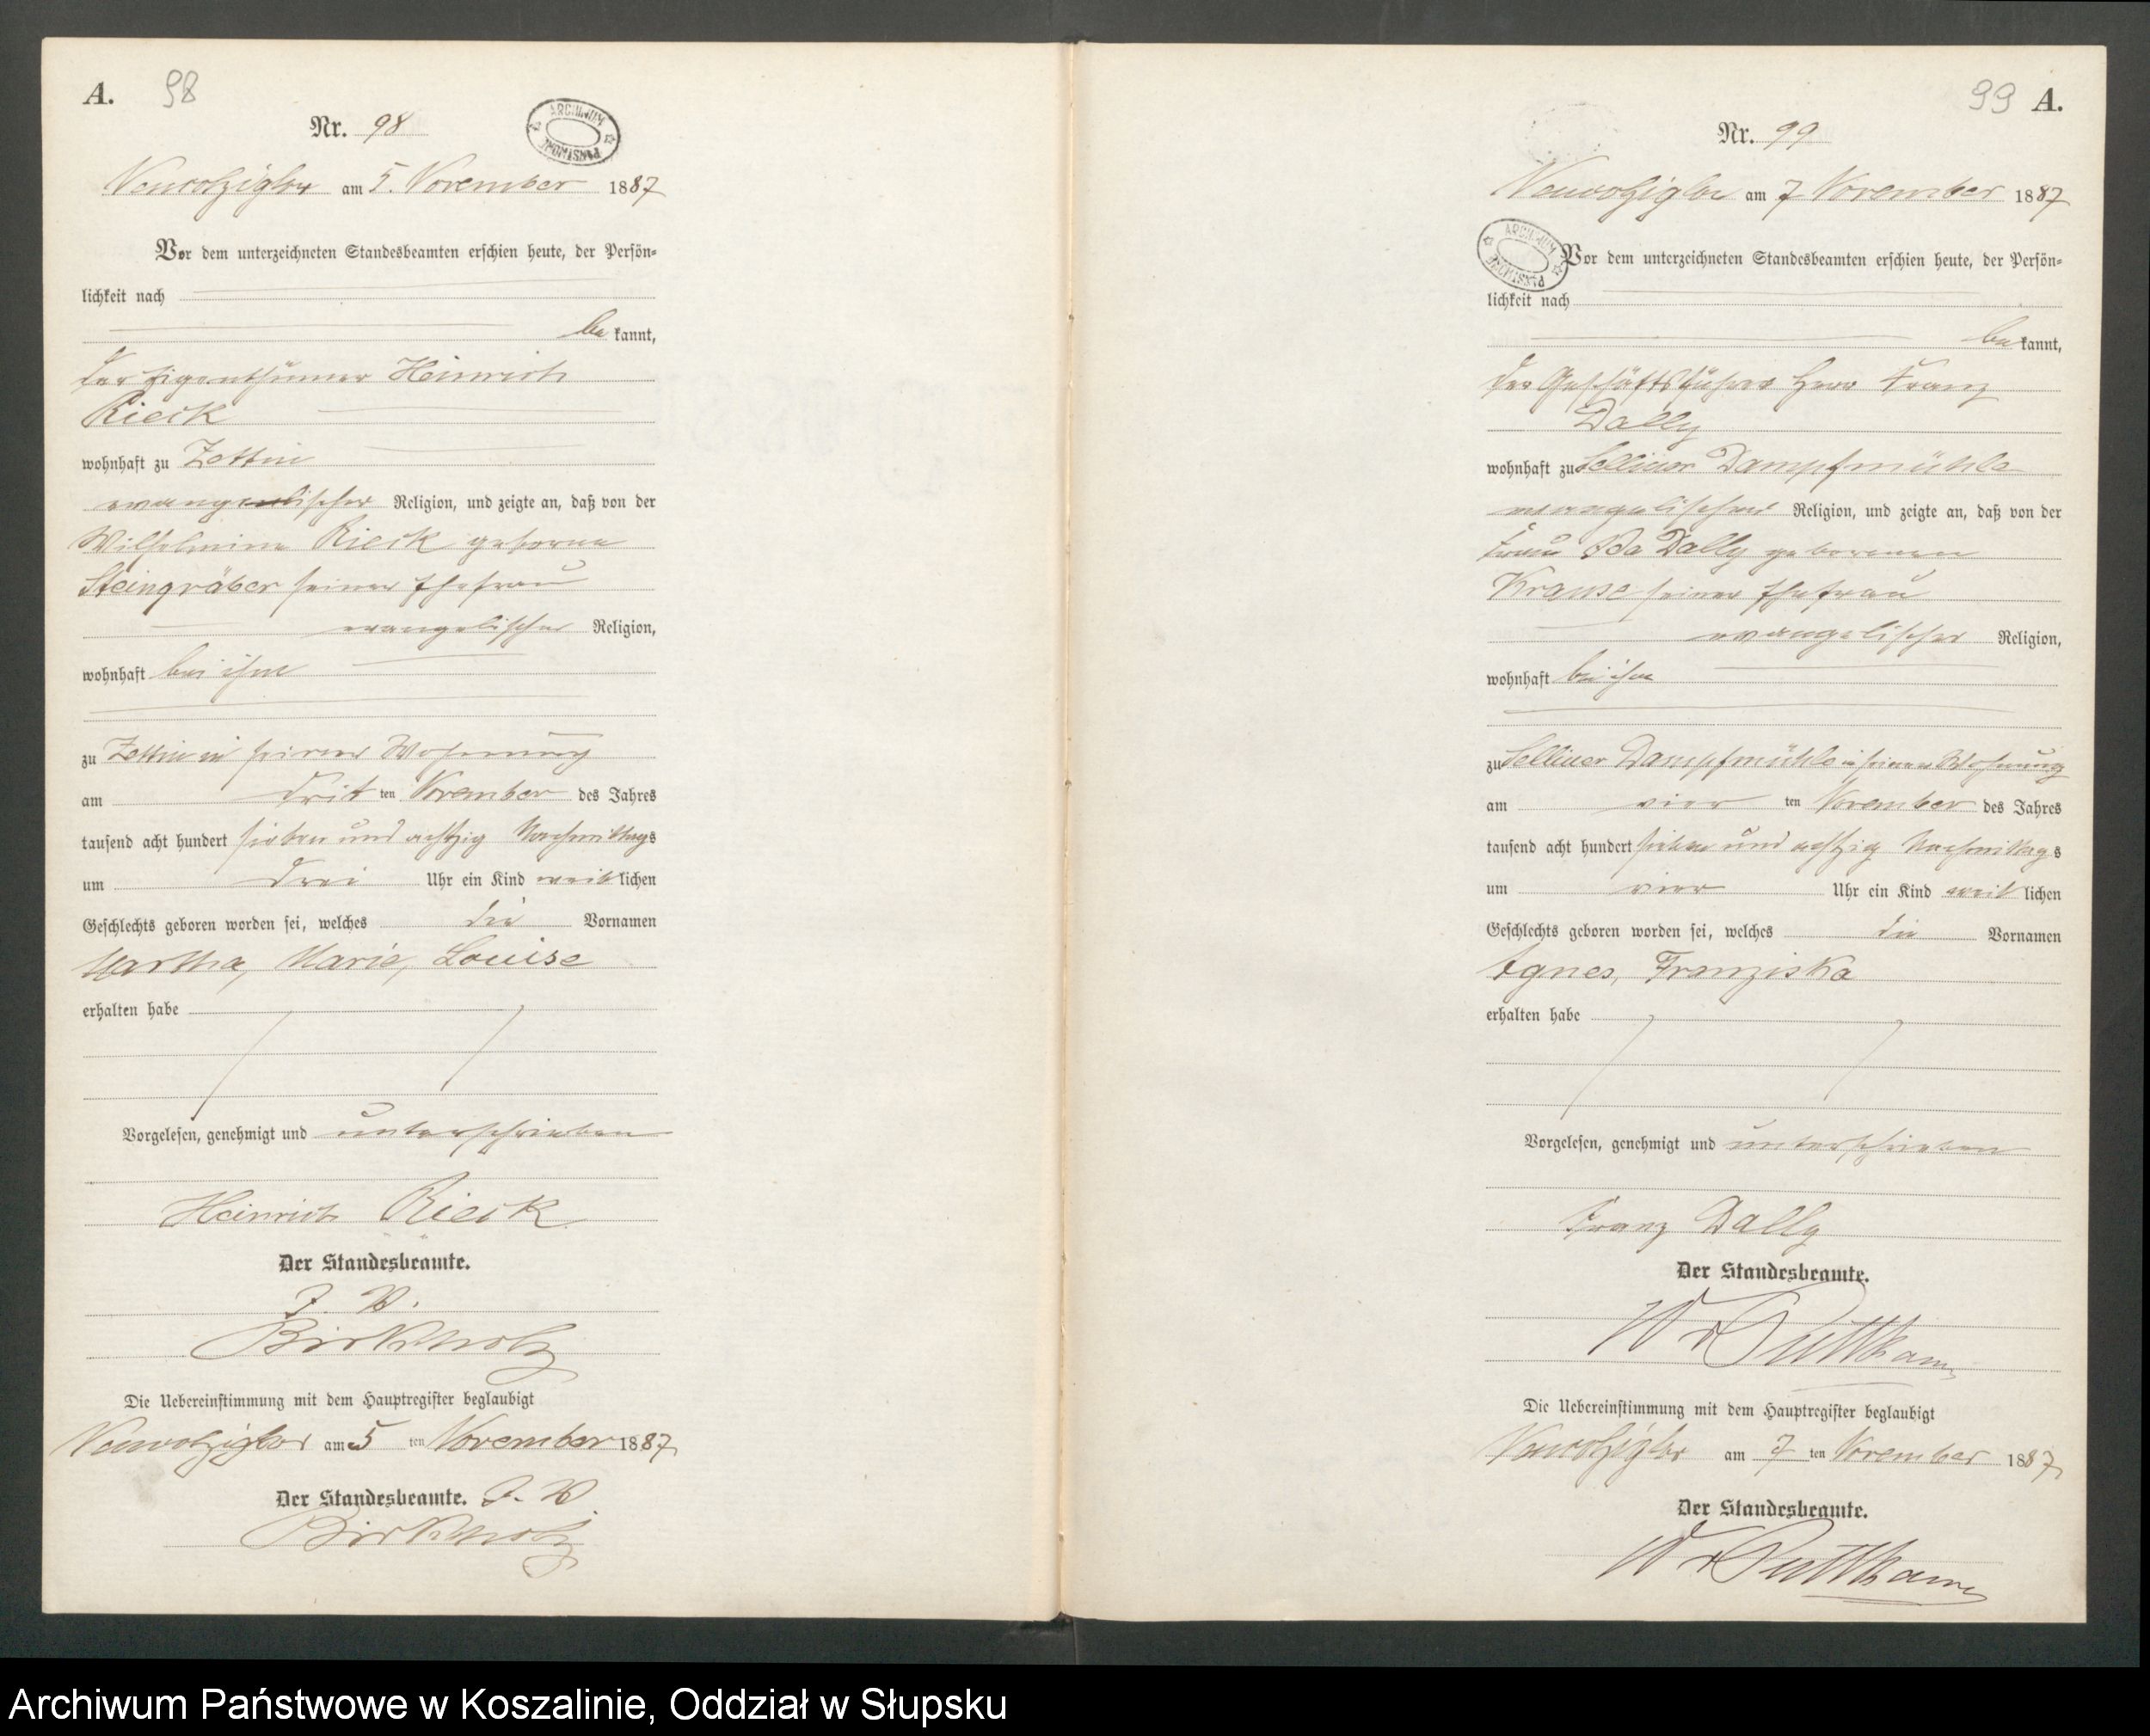 A. 98
ARCHIWUM PAŃSTWOWE
Nr. 98
am 5. November 1887
Vor dem unterzeichneten Standesbeamten erschien heute, der Persön-
lichkeit nach
be kannt,
der Eigenthümer Heinrich
Rieck
wohnhaft zu Zettin
evangelischer Religion, und zeigte an, daß von der
Wilhelmine Rieck geborne
Steingräber seiner Ehefrau
evangelischer Religion,
wohnhaft bei ihm
zu Zettin in seiner Wohnung
am drit ten November des Jahres
tausend acht hundert sieben und achtzig Nachmittags
um drei Uhr ein Kind weiblichen
Geschlechts geboren worden sei, welches die Vornamen
Martha, Marie, Louise
erhalten habe
Vorgelesen, genehmigt und unterschrieben
Heinrich Rieck
Der Standesbeamte.
J. V.
Birkholz
Die Uebereinstimmung mit dem Hauptregister beglaubigt
am 5 ten November 1887
Der Standesbeamte. J. V
Birkholz
99 A.
Nr. 99
am 7 November 1887
ARCHIWUM PAŃSTWOWE
Vor dem unterzeichneten Standesbeamten erschien heute, der Persön-
lichkeit nach
be kannt,
der Geschäftsführer Herr Franz
Dally
wohnhaft zu Selliner Dampfmühle
evangelischer Religion, und zeigte an, daß von der
Frau Ida Dally geborenen
Krause seiner Ehefrau
evangelischer Religion,
wohnhaft bei ihm
zu Selliner Dampfmühle in seiner Wohnung
am vier ten November des Jahres
tausend acht hundert sieben und achtzig Nachmittags
um vier Uhr ein Kind weiblichen
Geschlechts geboren worden sei, welches die Vornamen
Agnes, Franziska
erhalten habe
Vorgelesen, genehmigt und unterschrieben
Franz Dally
Der Standesbeamte.
W v Puttkamer
Die Uebereinstimmung mit dem Hauptregister beglaubigt
am 7 ten November 1887
Der Standesbeamte.
W v Puttkamer
Archiwum Państwowe w Koszalinie, Oddział w Słupsku